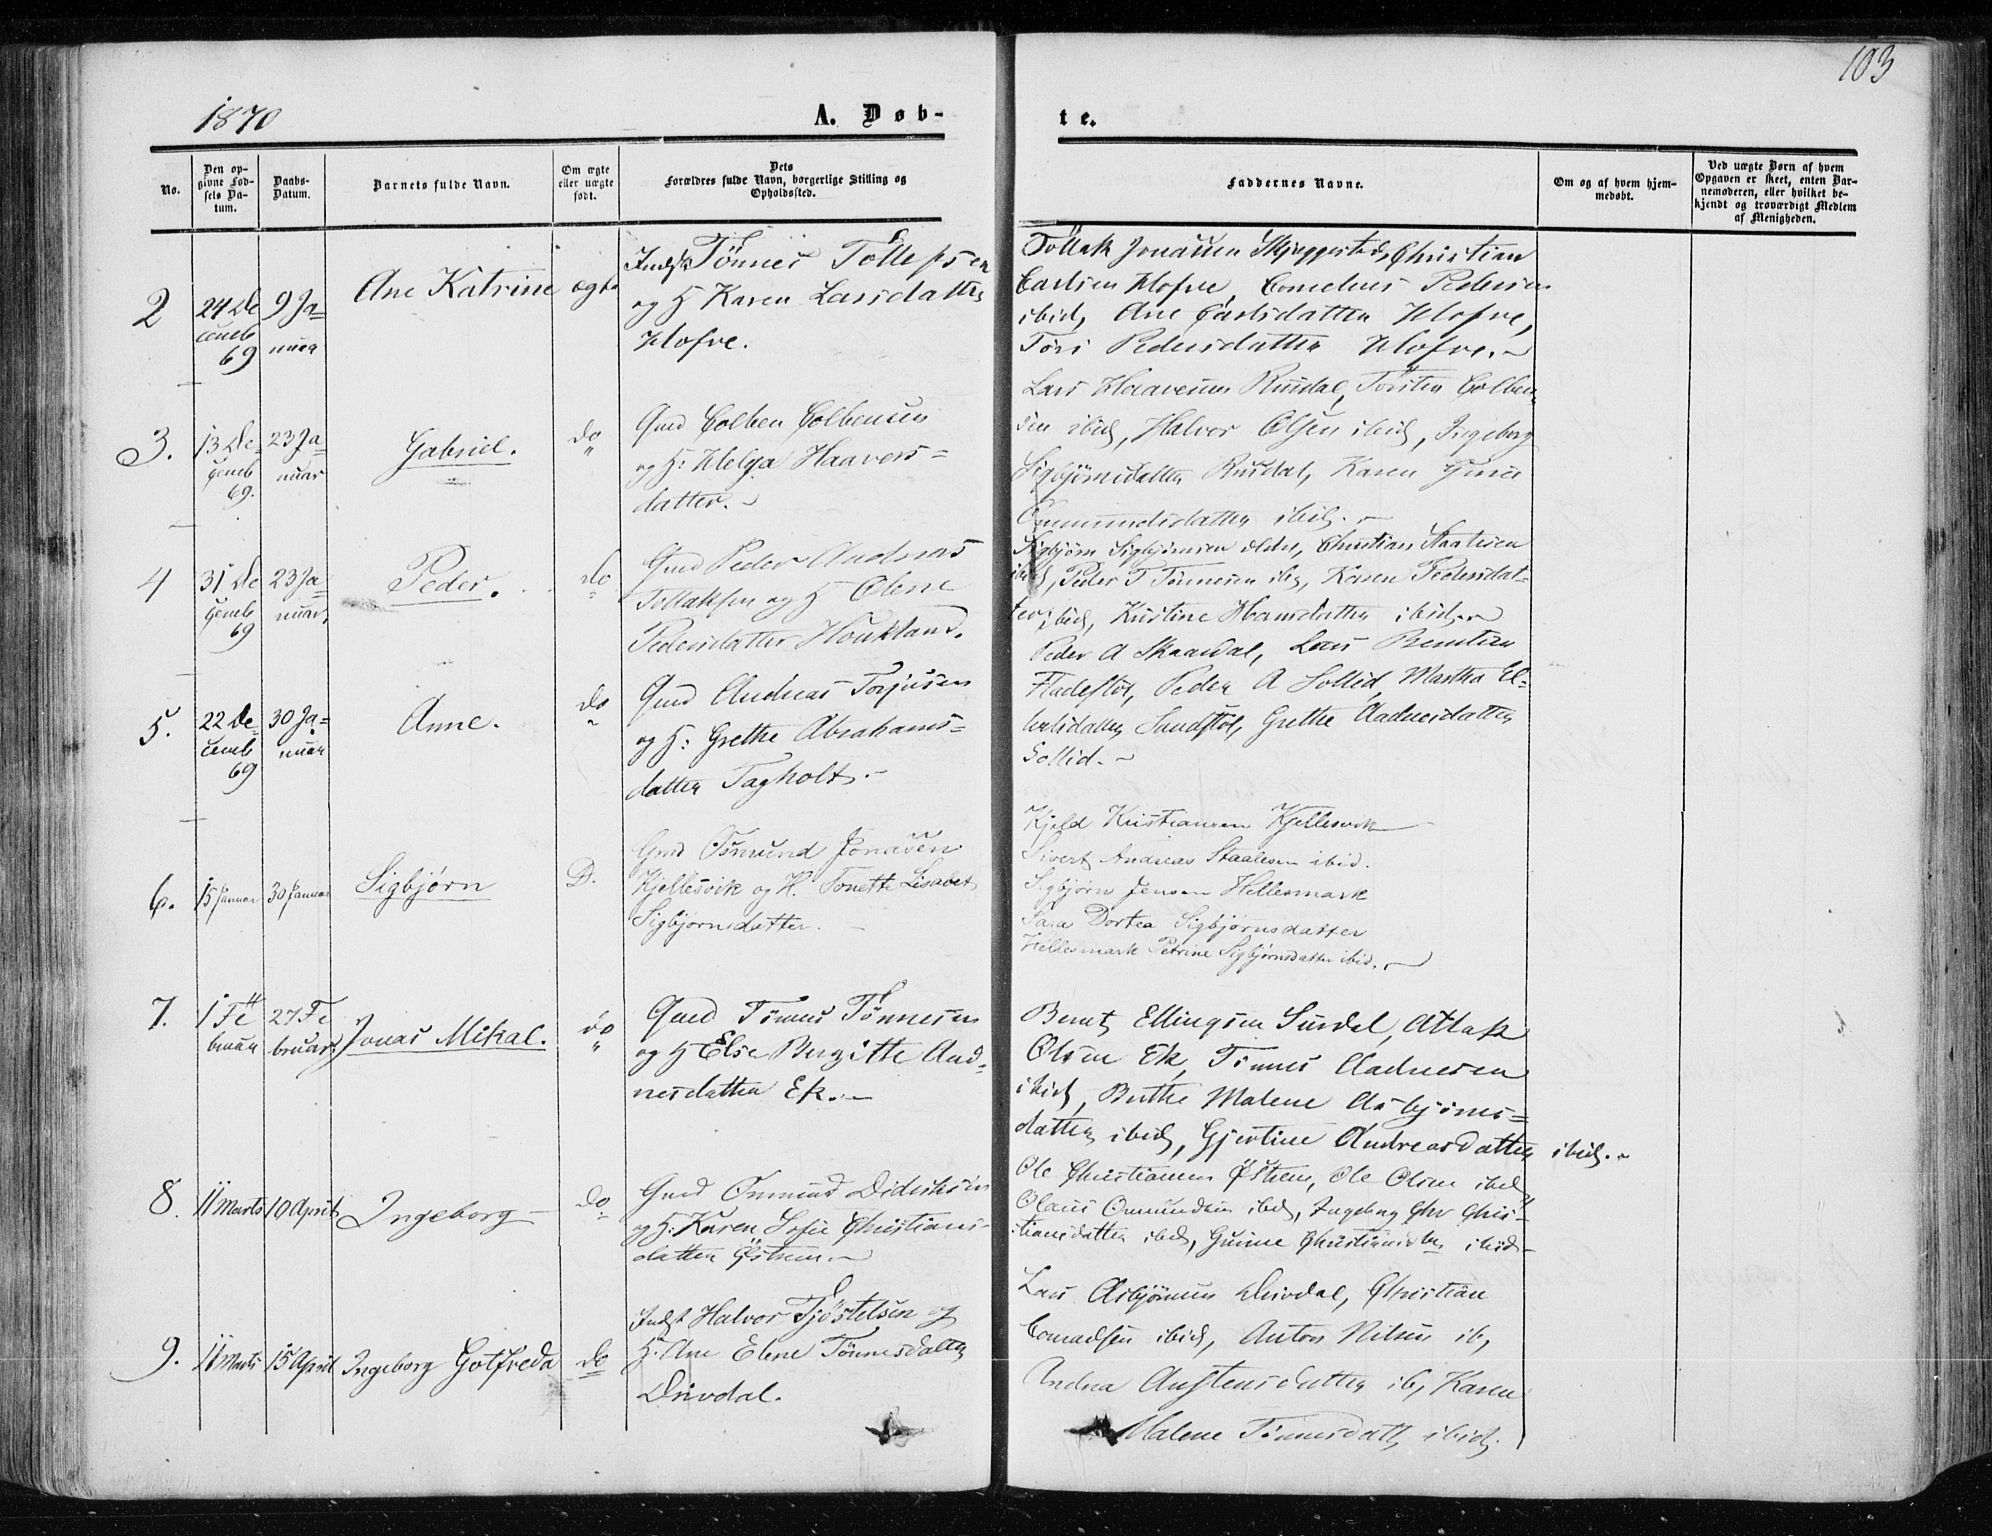 103
1870
A. Døb-
te.
No.
Den op-
givne Fød-
sels Da-
tum.
Daabs-
Datum.
Barnets fulde Navn.
Om ægte
eller uægte
født.
Dets
Forældres fulde Navn, borgerlige Stilling og
Opholdssted.
Faddernes Navne.
Om og af hvem hjem-
medøbt.
Ved uægte Børn af hvem
Opgaven er skeet, enten Bar-
nemoderen, eller hvilket be-
kjendt og troværdigt Medlem
af Menigheden.
2
24 De
cemb
69
9 Ja-
nuar
Ane Katrine
ægte
Indst Tønnes Tollefsen
og H Karen Larsdatter
Hofve.
Tollak Jonassen Skjeggestad, Christian
Carlsen Hofve, Cornelius Pedersen
ibid, Ane Carlsdatter Hofve,
Tori Pedersdatter Hofve.
3.
13 De-
cemb
69.
23 Ja
nuar
Gabriel.
do
Gmd Colben Colbensen
og H: Helga Haavers-
datter.
Lars Haaversen Rusdal, Torsten Colben-
sen ibid, Halvor Olsen ibid, Ingeborg
Sigbjørnsdatter Rusdal, Karen
Ommundsdatter ibid.
4
31 De
cemb
69
23 Ja
nuar,
Peder.
do
Gmd Peder Andreas
Tollaksen og H Olene
Pedersdatter Houkland.
Sigbjørn Sigbjørnsen ibid, Christian Staalesen
ibid, Peder T Tønnesen ibid, Karen Pedersdat-
ter ibid, Kristine Hansdatter ibid
5.
22 De-
cemb
69
30 Ja-
nuar
Anne.
do
Gmd Andreas Torjusen
og H: Grethe Abrahams-
datter Tagholt.
Peder A Skaardal, Lars Berntsen
Fladestøl, Peder A Sollid, Martha El-
lertsdatter Sandstøl, Grethe Aadnesdatter
Sollid.
6.
15 Januar
30 Januar
Sigbjørn
D.
Gmd Osmund Jonasen
Kjellesvik og H. Tonette Lisabet
Sigbjørnsdatter.
Kjeld Kristiansen Kjellesvik
Sivert Andreas Staalesen ibid.
Sigbjørn Jensen Hellesmark
Sara Dortea Sigbjørnsdatter
Hellesmark Petrine Sigbjørnsdatter ibid.
7.
1 Fe
bruar
27 Fe
bruar
Jonas Mikal.
do
Gmd Tønnes Tønnesen
og H Else Birgitte Aad-
nesdatter Ek.
Bernt Ellingsen Surdal, Atlak
Olsen Ek, Tønnes Aadnesen
ibid, Berthe Malene Asbjørns-
datter ibid, Gjertine Andreasdatter ibid.
8.
11 Marts
10 April
Ingeborg
do
Gmd Ommund Didriksen
og H: Karen Sofie Christians-
datter Østrem.
Ole Christiansen Østrem, Ole Olsen ibid
Olaus Ommundsen ibid, Ingeborg Chr Chris-
tiansdatter ibid, Gunne Christiansdtr ibid
9.
11 Marts
15 April
Ingeborg Gotfreda
do
Indst Halvor Tjøstelsen og
H. Ane Elene Tønnesdatter
Drivdal.
Lars Asbjørnsen Drivdal, Christian
Conradsen ibid, Anton Nilsen ib,
Andrea Austensdatter ib, Karen
Malene Tønnesdatt ibid.